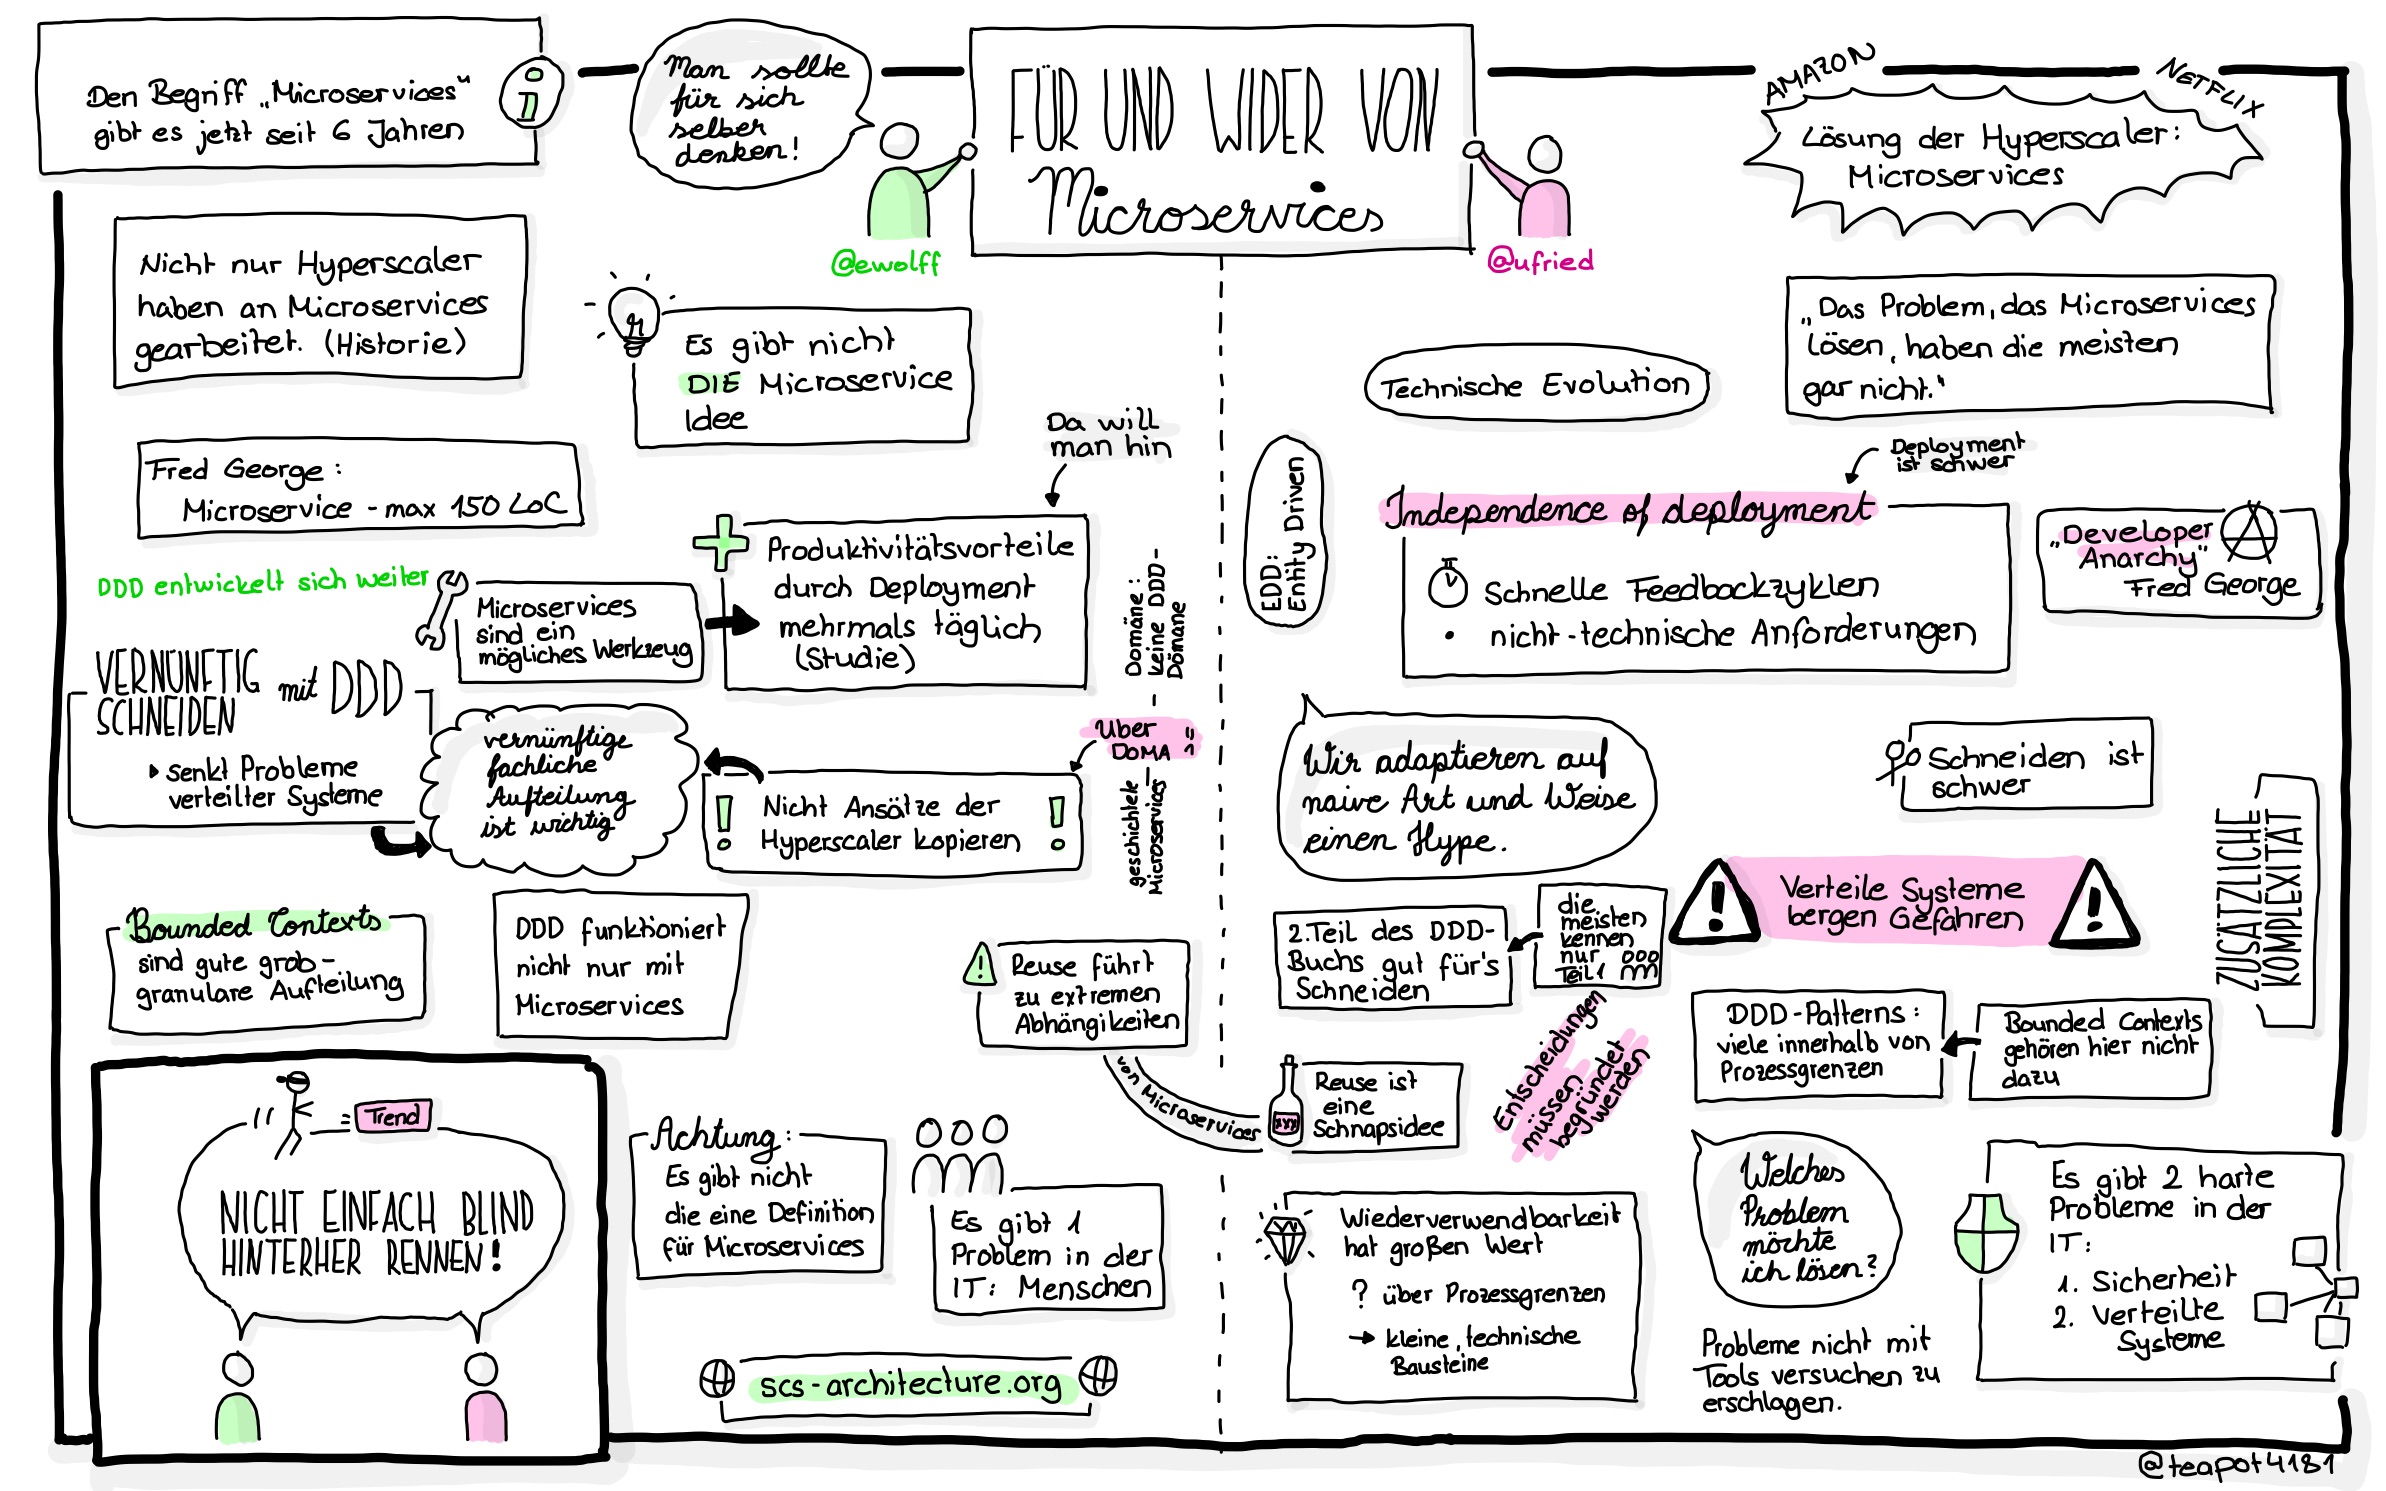 Den Begriff „Microservices"
gibt es jetzt seit 6 Jahren
i
Man sollte
für sich
selber
denken!
FÜR UND WIDER VON
Microservices
@ewolff
@ufried
AMAZON
NETFLIX
Lösung der Hyperscaler:
Microservices
Nicht nur Hyperscaler
haben an Microservices
gearbeitet. (Historie)
Es gibt nicht
DIE Microservice
Idee
Fred George:
Microservice - max 150 LoC
DDD entwickelt sich weiter
Microservices
sind ein
mögliches Werkzeug
Da will
man hin
Produktivitätsvorteile
durch Deployment
mehrmals täglich
(Studie)
VERNÜNFTIG
SCHNEIDEN
mit DDD
senkt Probleme
verteilter Systeme
vernünftige
fachliche
Aufteilung
ist wichtig
! Nicht Ansätze der !
Hyperscaler kopieren
Uber
DOMA
Domäne:
keine DDD-
Domäne
geschichtete
Microservices
Bounded Contexts
sind gute grob-
granulare Aufteilung
DDD funktioniert
nicht nur mit
Microservices
! Reuse führt
zu extremen
Abhängigkeiten
von Microservices
= Trend
NICHT EINFACH BLIND
HINTERHER RENNEN!
Achtung:
Es gibt nicht
die eine Definition
für Microservices
Es gibt 1
Problem in der
IT: Menschen
scs-architecture.org
„Das Problem, das Microservices
lösen, haben die meisten
gar nicht."
Technische Evolution
EDD:
Entity Driven
Deployment
ist schwer
Independence of deployment
Schnelle Feedbackzyklen
• nicht-technische Anforderungen
„Developer
Anarchy"
Fred George
A
Wir adaptieren auf
naive Art und Weise
einen Hype.
Schneiden ist
schwer
ZUSÄTZLICHE
KOMPLEXITÄT
! Verteile Systeme !
bergen Gefahren
2. Teil des DDD-
Buchs gut für's
Schneiden
die
meisten
kennen
nur
Teil 1
DDD-Patterns:
viele innerhalb von
Prozessgrenzen
Bounded Contexts
gehören hier nicht
dazu
XXX
Reuse ist
eine
Schnapsidee
Entscheidungen
müssen
begründet
werden
Wiederverwendbarkeit
hat großen Wert
? über Prozessgrenzen
→ kleine, technische
Bausteine
Welches
Problem
möchte
ich lösen?
Probleme nicht mit
Tools versuchen zu
erschlagen.
Es gibt 2 harte
Probleme in der
IT:
1. Sicherheit
2. Verteilte
Systeme
@teapot4181